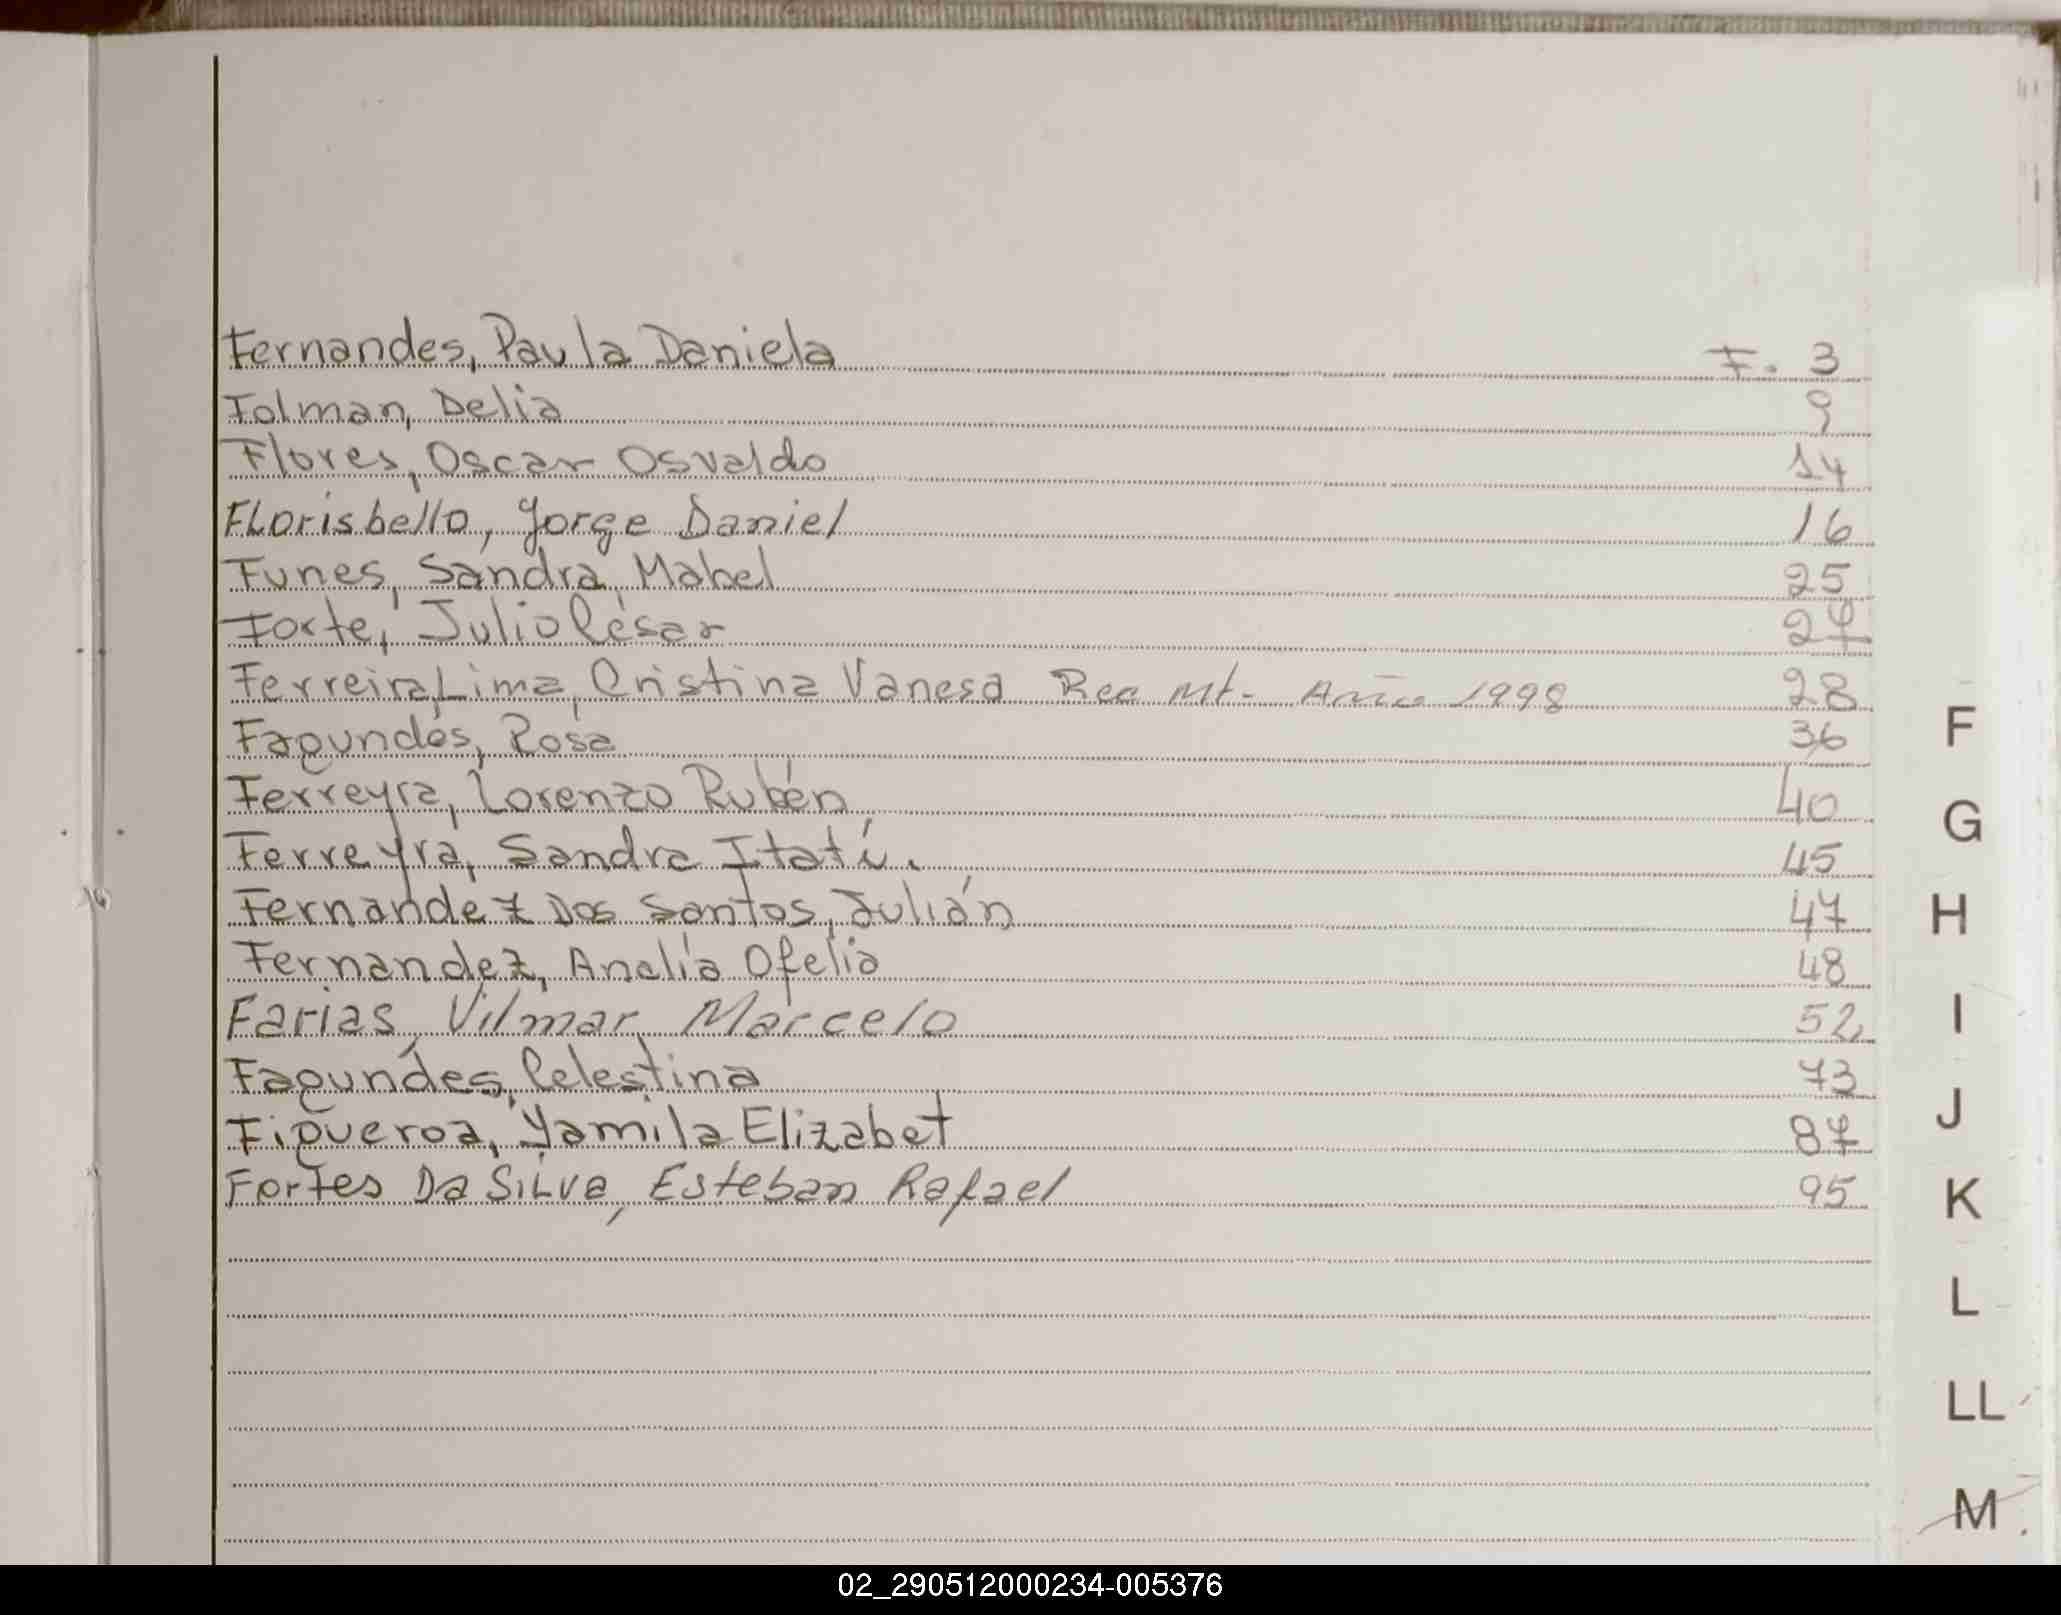 Fernandes, Paula Daniela F. 3
Folman, Delia 9
Flores, Oscar Osvaldo 14
Florisbello, Jorge Daniel 16
Funes, Sandra Mabel 25
Forte, Julio César 27
Ferreira Lima, Cristina Vanesa Rec Mt. Año 1998 28
Fagundes, Rosa 36
Ferreyra, Lorenzo Rubén 40
Ferreyra, Sandra Itatí. 45
Fernandez Dos Santos, Julián 47
Fernandez, Analía Ofelia 48
Farias, Vilmar Marcelo 52
Fagundes, Celestina 73
Figueroa, Yamila Elizabet 87
Fortes Da Silva, Esteban Rafael 95
F
G
H
I
J
K
L
LL
M
02_290512000234-005376